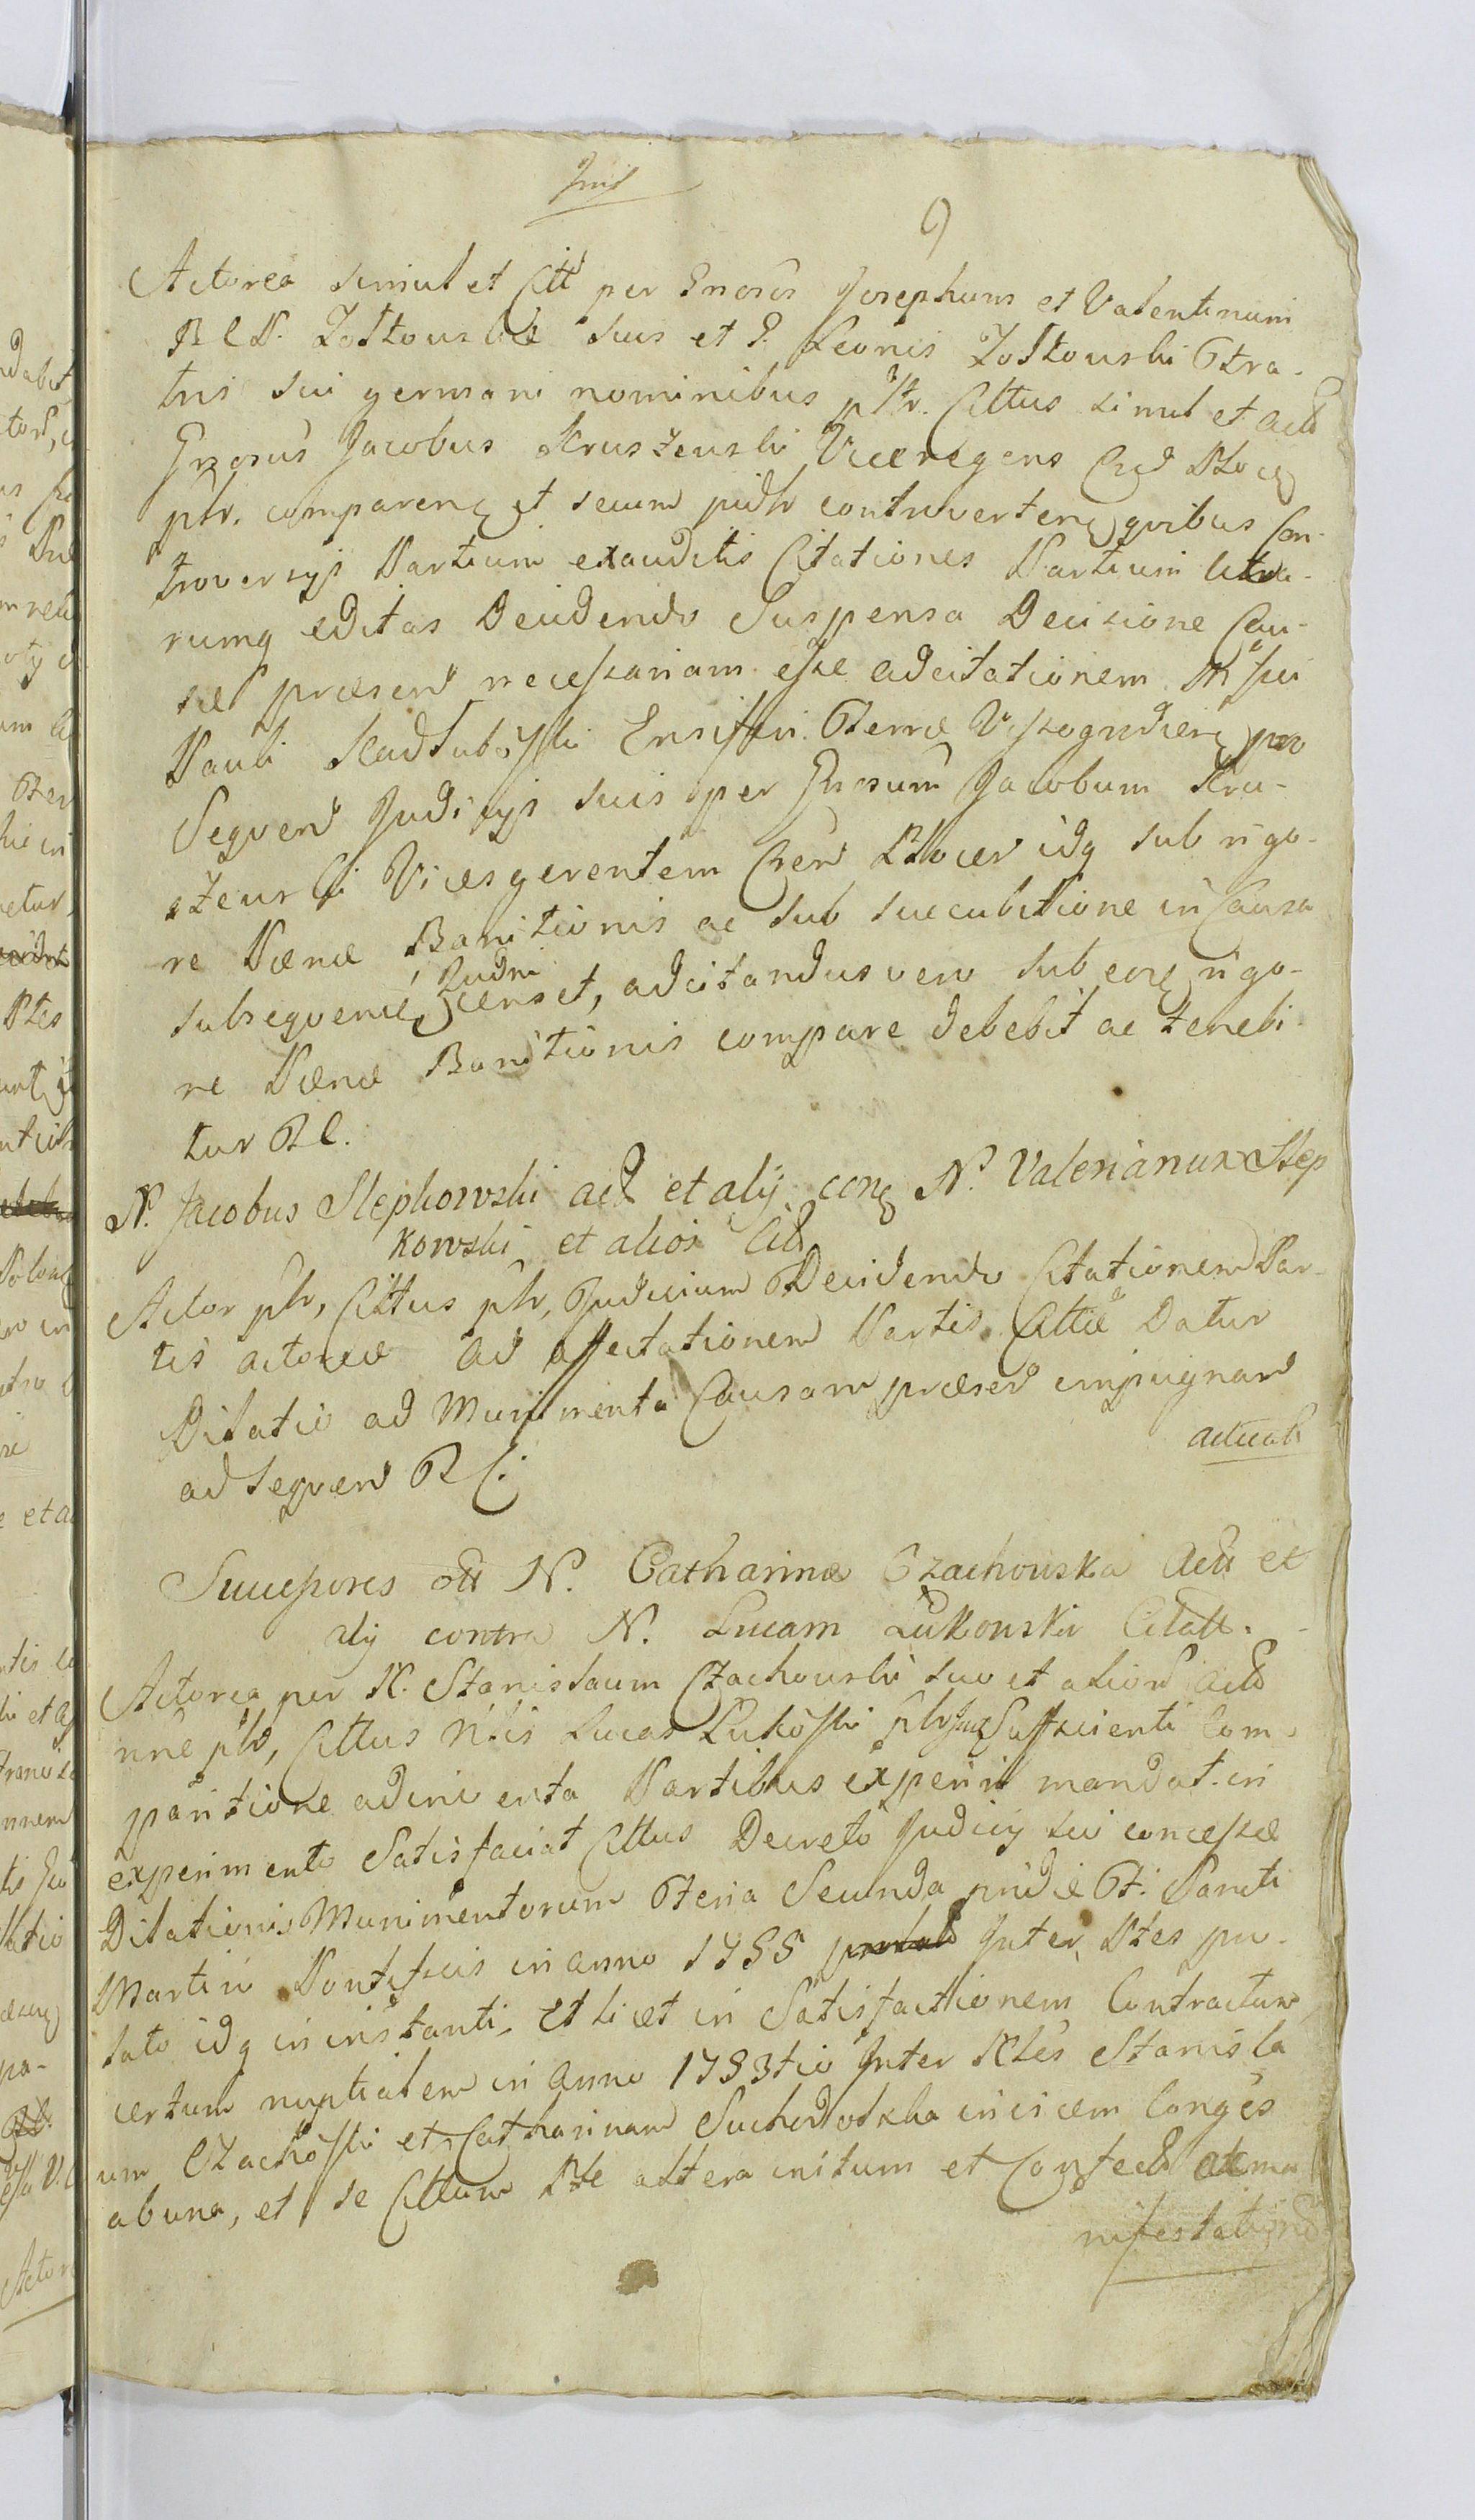 9
Actorea simul et Citt per Gnosos Josephum et Valentinum
suis et G. Leonis Fra-
tris sui germani nominibus ptr. Cittus simul et act
Gnosus Jacobus Kruszewski Viceregens Ploc
ptr. comparen et secum controverten quibus Con-
troversys Partium exauditis Citationes Partium utra-
rumq editas Decidendo Suspensa Decisione Cau-
sæ præsen necessariam esse adcitationem
Pauli Ensiferi Terræ pro
Sequen Judicys suis per Gnosum Jacobum Kru-
szewski Vicesgerentem Cren Plocen idq sub rigo-
re Pænæ Banitionis ac sub succubitione in Causa
subsequen censet, adcitandus vero sub eodem rigo-
re Pænæ Banitionis compare debebit ac tenebi-
tur
N. Jacobus Slepkowski act et alij con N. Valerianum Slep
kowski et alios Citt
Actor ptr, Cittus ptr, Judicium Decidendo Citationem Par-
tis actoreæ ad affectationem Partis Cittæ Datur
Dilatio ad Munimenta Causam præsen impugnan
ad sequen
actual
Successores olt N. Catharinæ Czachowska Act et
alij contra N. Lucam Łukowski Citatt.
Actorea per N. Stanislaum Czachowski suo et alior act
nne ptr, Cittus Lucas Sufficienti Com-
paritione adinventa Partibus experiri mandat. in
experimento Satisfaciat Cittus Decreto Judicij sui concessæ
Dilationis Munimentorum Feria Secunda pridie F. Sancti
Martini Pontificis in anno 1755 Inter Ptes pro-
lato idq in instanti. Et licet in Satisfactionem Contractum
certum nuptialem in Anno 1753tio Inter Stanisla
um et Catharinam Suchodolska invicem
ab una, et se Cittum Pte altera initum et Confect ac ma
nifestation